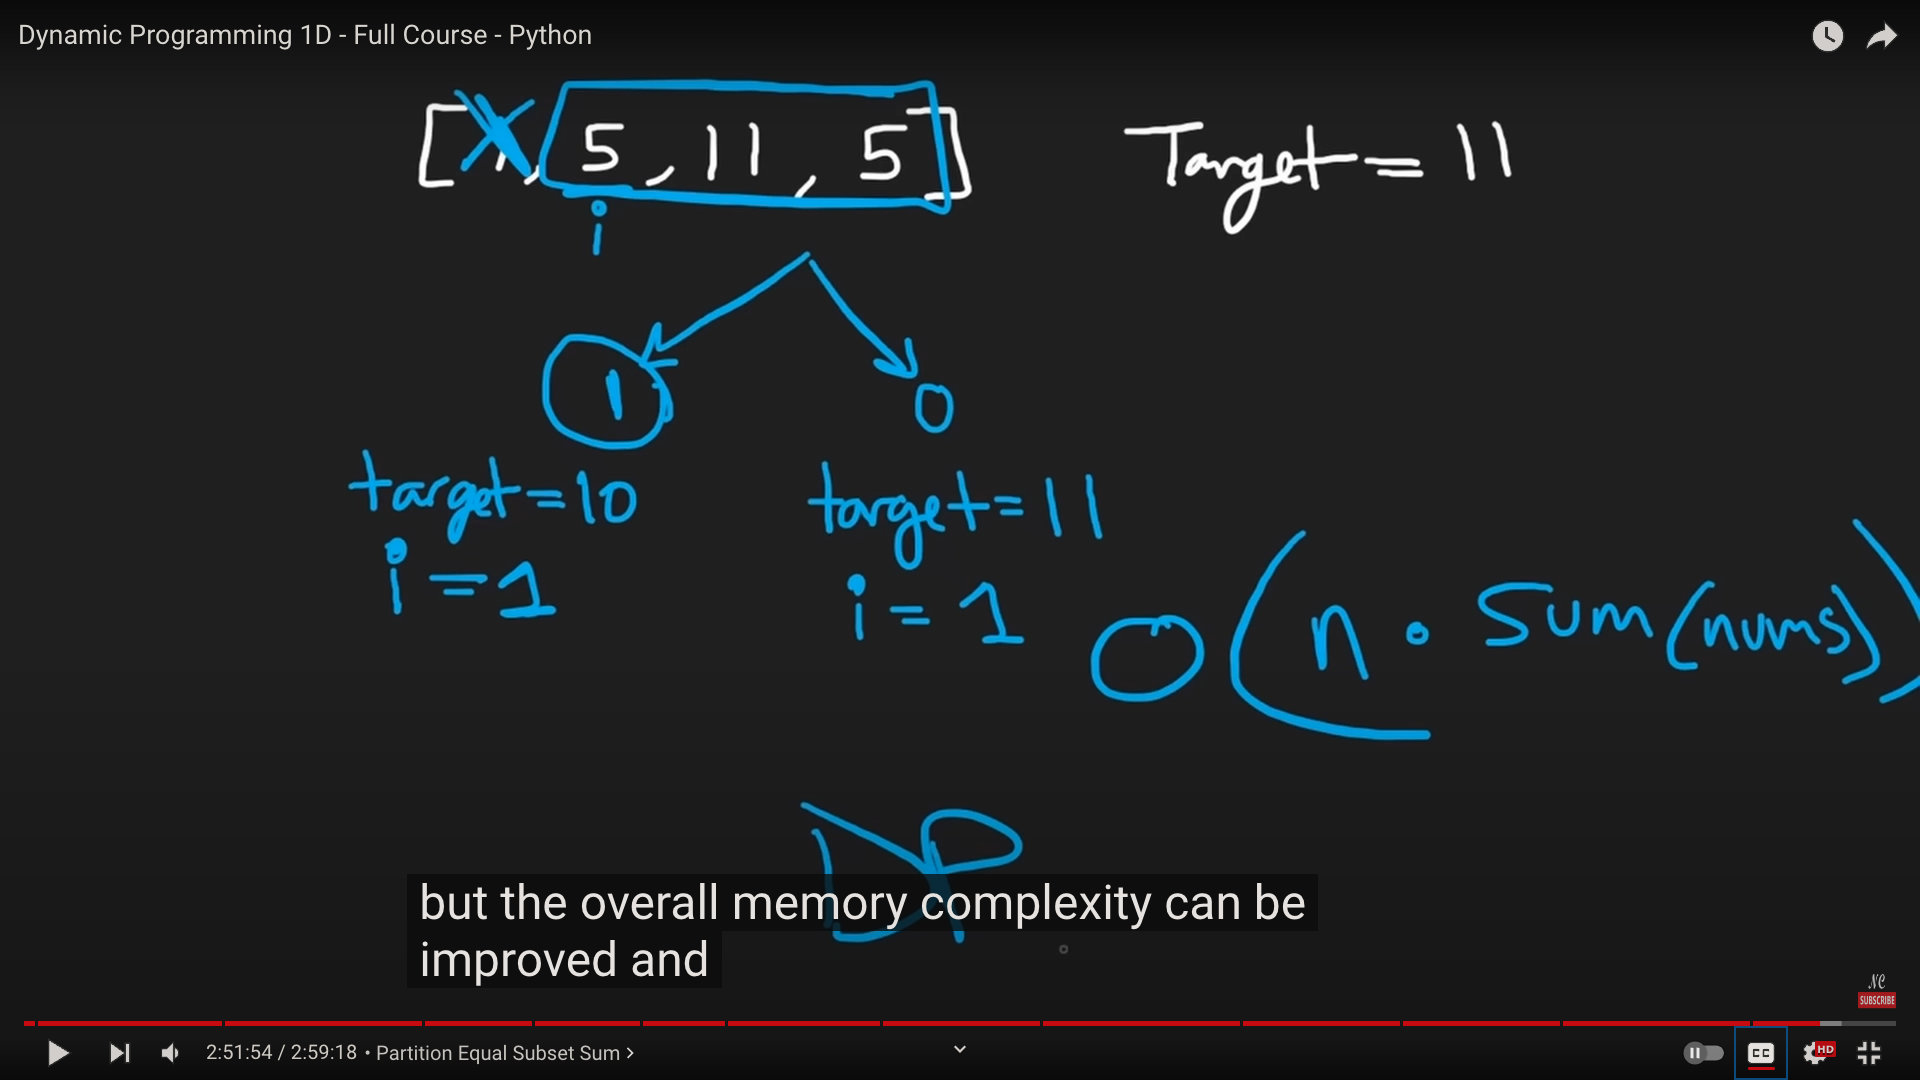 Dynamic Programming 1D - Full Course - Python
[ , 5 , 11 , 5 ] Target = 11
i
1 0
target = 10 target = 11
i = 1 i = 1
O(n · Sum(nums))
DP
but the overall memory complexity can be
improved and
NC
SUBSCRIBE
2:51:54 / 2:59:18 • Partition Equal Subset Sum >
CC HD